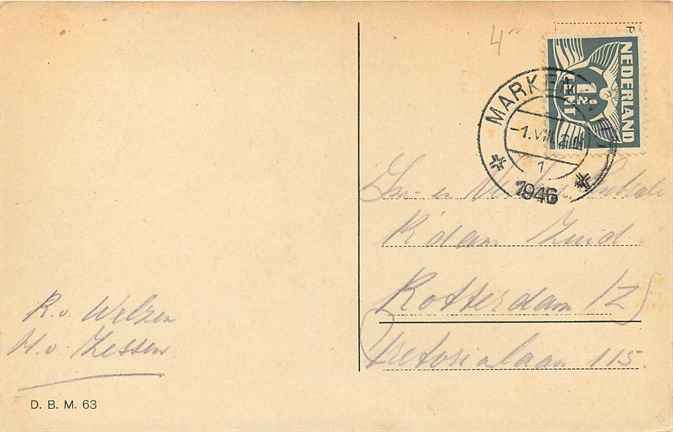 4
P
NEDERLAND
1½
CENT
MARKEN
-1.VIII
1
1946
R'dam Zuid
Rotterdam (Z)
Pretorialaan 115.
R. v. Welzen
H. v. Zessen
D. B. M. 63